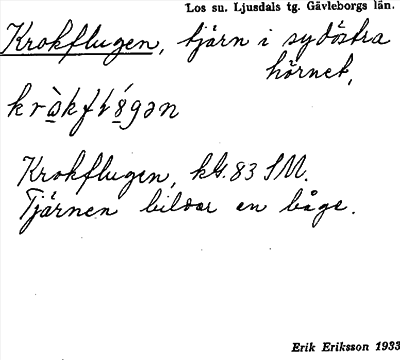 Los su. Ljusdals tg. Gävleborgs län.
Krokflugen, tjärn i sydöstra
hörnet,
Krokflugen, kbl. 83 SM.
Tjärnen bildar en båge.
Erik Eriksson 1933